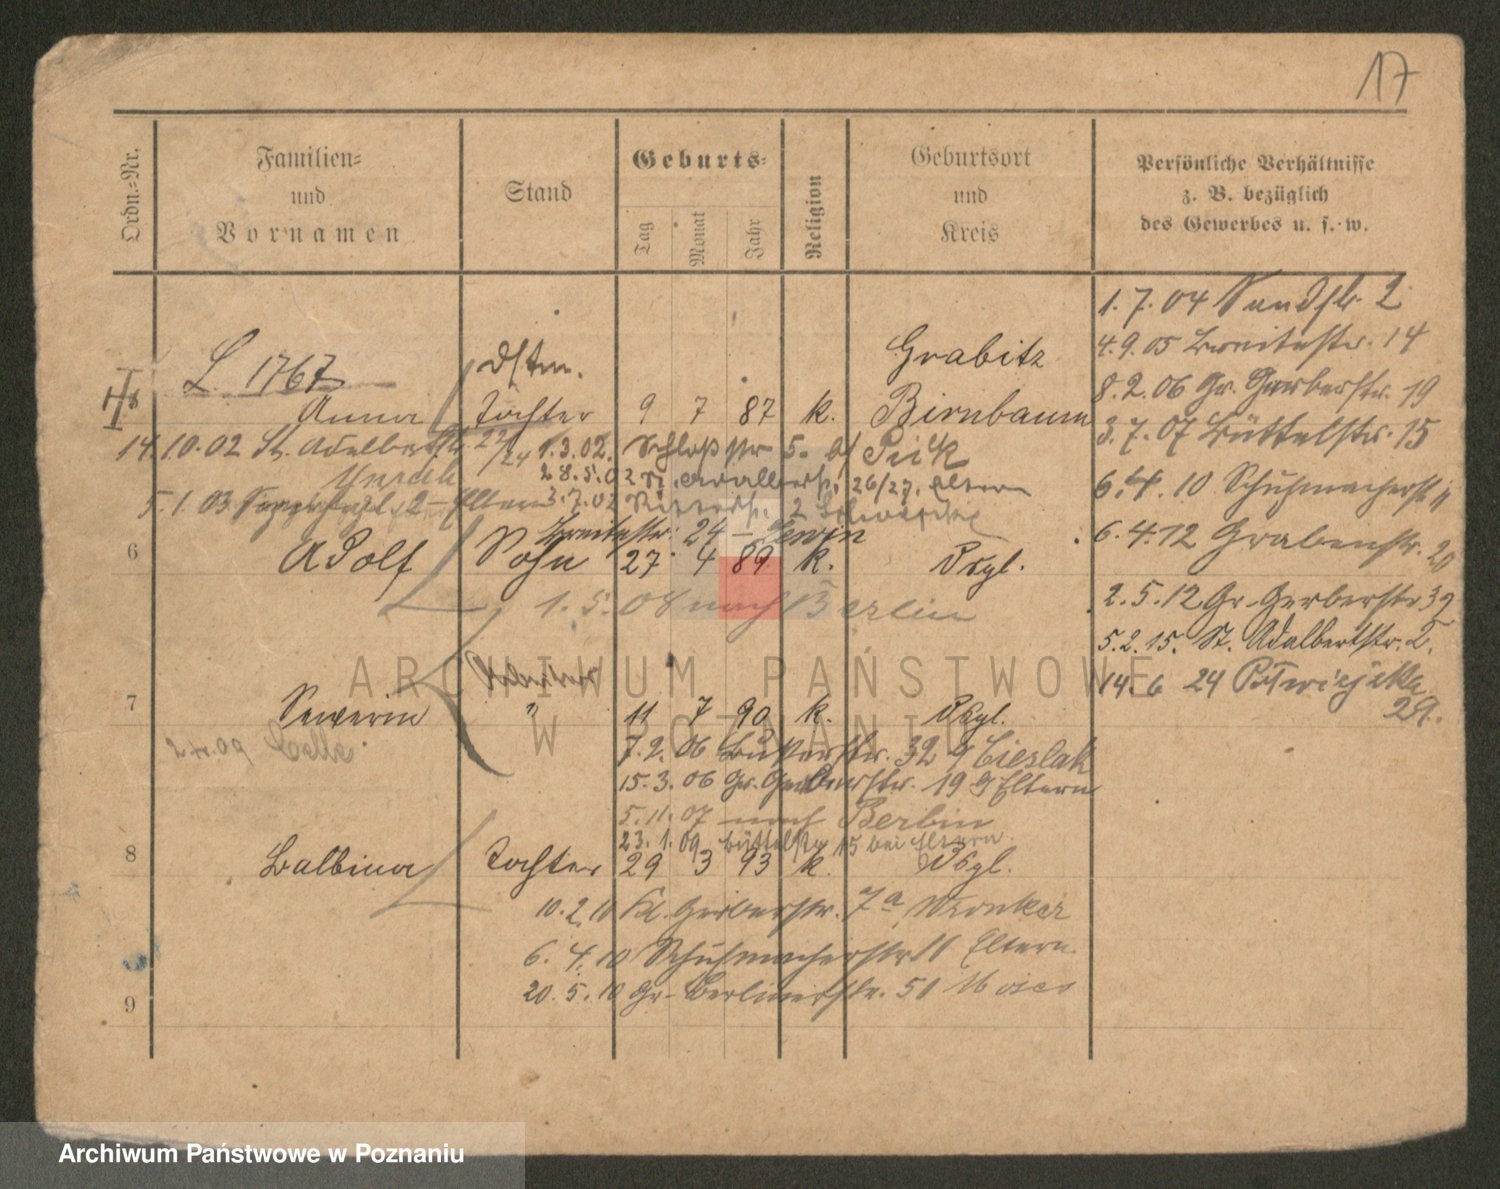 17
Ordn.-Nr.
Familien-
und
Vornamen
Stand
Geburts-
Tag
Monat
Jahr
Religion
Geburtsort
und
Kreis
Persönliche Verhältnisse
z. B. bezüglich
des Gewerbes u. s. w.
1.7.04 Sandstr. 2
4.9.05 Breitestr. 14
8.2.06 Gr. Gerberstr. 19
3.7.07 Büttelstr. 15
6.4.10 Schuhmacherstr. 11
6.4.12 Grabenstr. 20
2.5.12 Gr. Gerberstr 39
5.2.15. St. Adalbertstr. 2.
14.6 24 Półwiejska
29.
L. 1767
Grabitz
Anna Tochter 9 7 87 k. Birnbaum
14.10.02 St. Adalbertstr. 22/24 1.3.02. Schloßstr 5. b/ Pick
28.5.02 St. Adalbertstr. 26/27. Eltern
5.1.03 2 Eltern 3.7.02 Ritterstr. 2
Breitestr. 24 - Lewin
6 Adolf Sohn 27 4 89 k. Dsgl.
1.5.08 nach Berlin
ARCHIWUM PAŃSTWOWE
W POZNANIU
7 Sewerin " 11 7 90 k. Dsgl.
09 Celle
7.2.06 Büttelstr. 32 b/ Cieslak
15.3.06 Gr. Gerberstr. 19 b/ Eltern
5.11.07 nach Berlin
23.1.09 Büttelstr 15 bei Eltern
8 Balbina Tochter 29 3 93 k. Dsgl.
10.2.10 Kl. Gerberstr. 7a Wronker
6.4.10 Schuhmacherstr 11 Eltern
20.5.10 Gr. Berlinerstr. 51 Moses
9
Archiwum Państwowe w Poznaniu